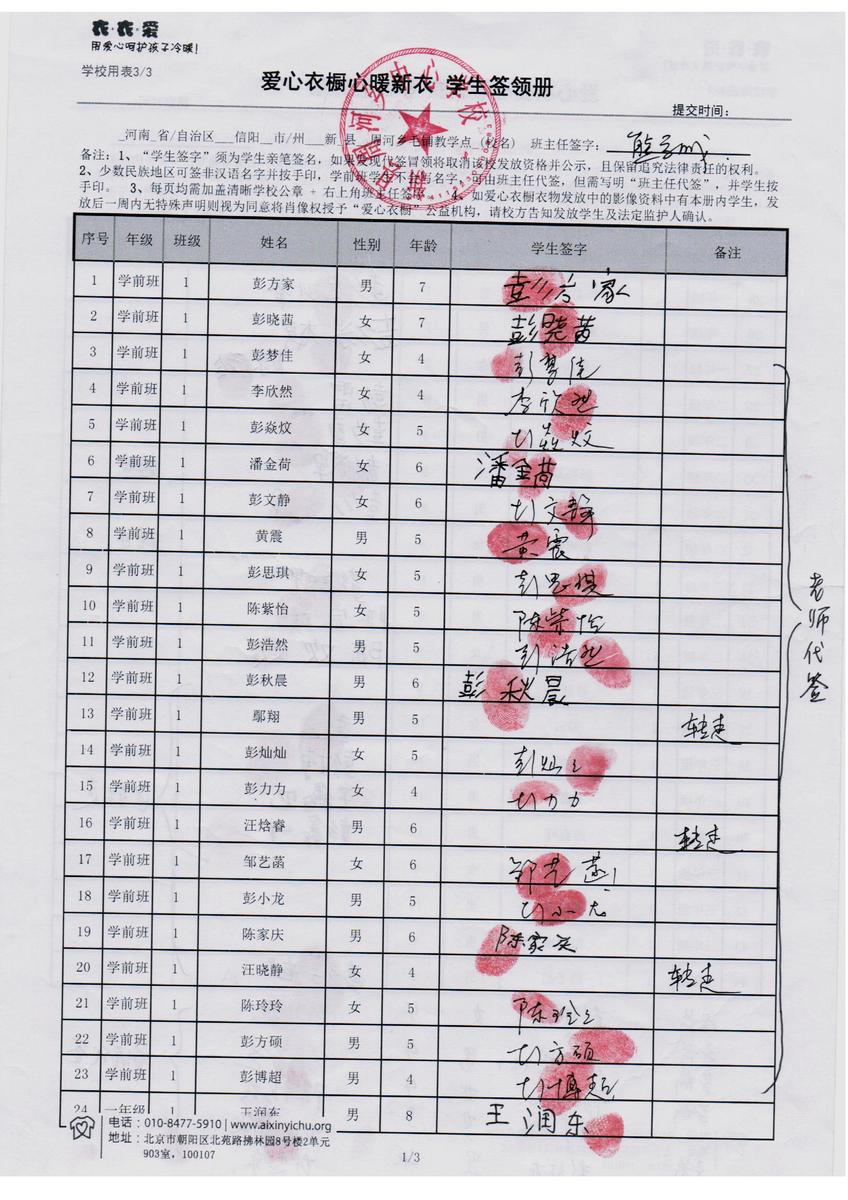 衣·衣·爱
用爱心呵护孩子冷暖!
学校用表3/3
爱心衣橱心暖新衣 学生签领册
提交时间:
河南 省/自治区 信阳 市/州 新 县 周河乡毛铺教学点 (校名) 班主任签字:
备注:1、“学生签字”须为学生亲笔签名,如果发现代签冒领将取消该校发放资格并公示,且保留追究法律责任的权利。
2、少数民族地区可签非汉语名字并按手印,学前班学生不会写名字,可由班主任代签,但需写明“班主任代签”,并学生按
手印。 3、每页均需加盖清晰学校公章 + 右上角班主任签字 4、如爱心衣橱衣物发放中的影像资料中有本册内学生,发
放后一周内无特殊声明则视为同意将肖像权授予“爱心衣橱”公益机构,请校方告知发放学生及法定监护人确认。
序号 年级 班级 姓名 性别 年龄 学生签字 备注
1 学前班 1 彭方家 男 7 彭方家
2 学前班 1 彭晓茜 女 7 彭晓茜
3 学前班 1 彭梦佳 女 4 彭梦佳
4 学前班 1 李欣然 女 4 李欣然
5 学前班 1 彭焱炆 女 5 焱炆
6 学前班 1 潘金荷 女 6 潘金荷
7 学前班 1 彭文静 女 6 文静
8 学前班 1 黄震 男 5 黄震
9 学前班 1 彭思琪 女 5 彭思琪
10 学前班 1 陈紫怡 女 5 陈紫怡
11 学前班 1 彭浩然 男 5 彭浩然
12 学前班 1 彭秋晨 男 6 彭秋晨
13 学前班 1 鄢翔 男 5 转走
14 学前班 1 彭灿灿 女 5 彭灿
15 学前班 1 彭力力 女 4 力力
16 学前班 1 汪焓睿 男 6 转走
17 学前班 1 邹艺菡 女 6 邹艺菡
18 学前班 1 彭小龙 男 5 小龙
19 学前班 1 陈家庆 男 6 陈家庆
20 学前班 1 汪晓静 女 4 转走
21 学前班 1 陈玲玲 女 5 陈玲
22 学前班 1 彭方硕 男 5 方硕
23 学前班 1 彭博超 男 4 博超
24 一年级 1 王润东 男 8 王润东
老师代签
电话:010-8477-5910 | www.aixinyichu.org
地址:北京市朝阳区北苑路拂林园8号楼2单元
903室,100107
1/3